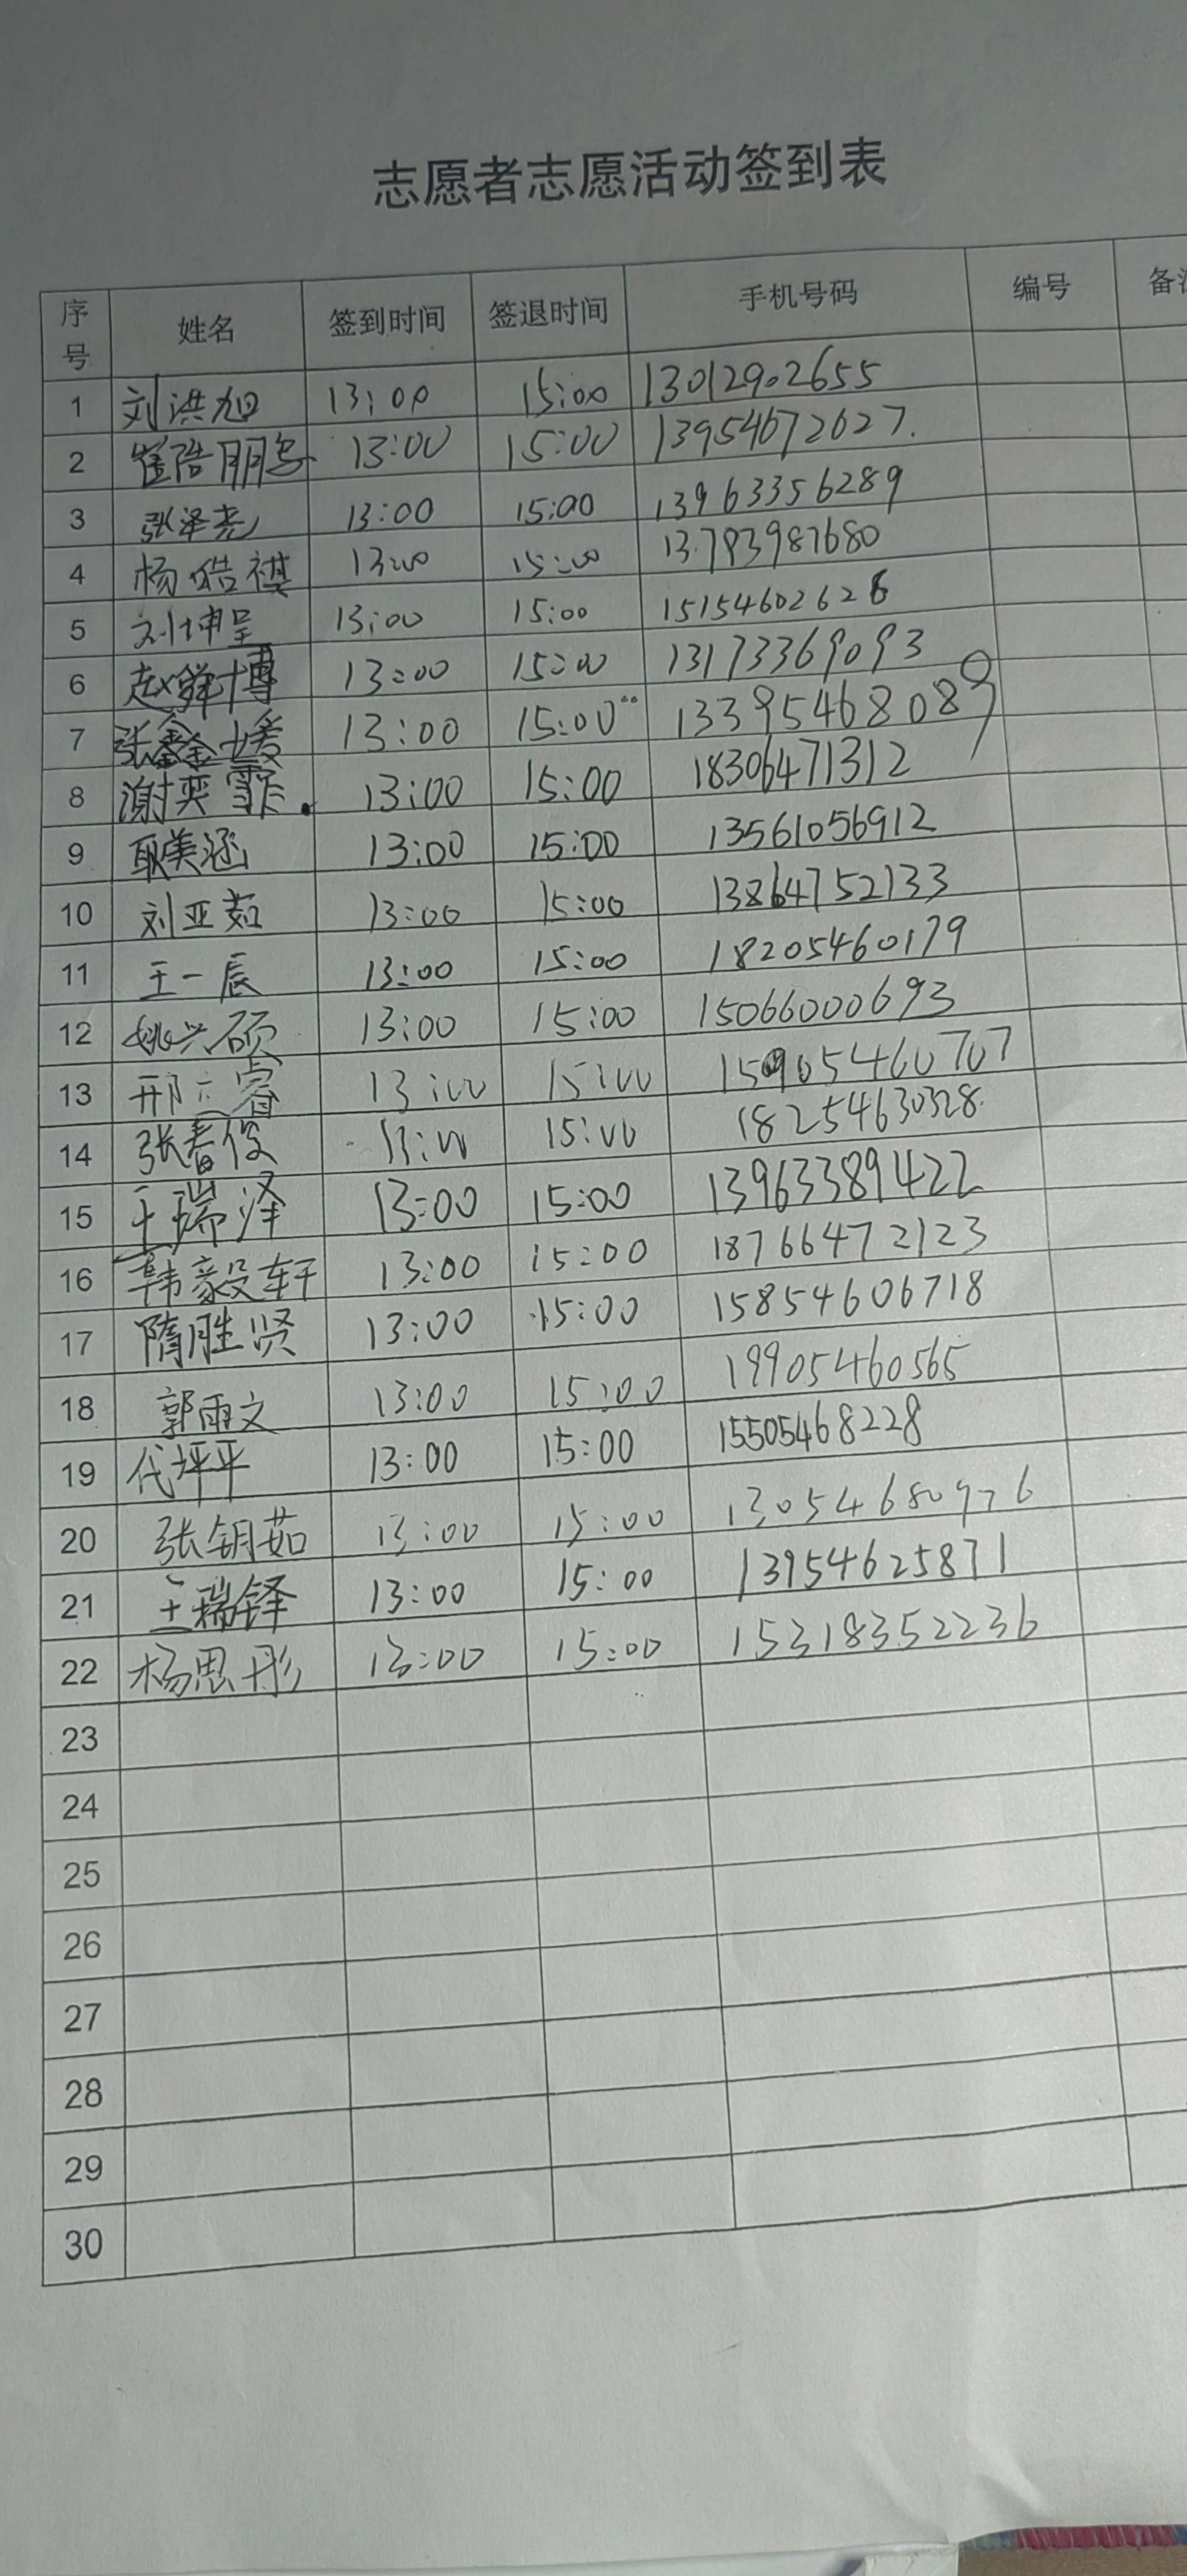 志愿者志愿活动签到表
序号 姓名 签到时间 签退时间 手机号码 编号 备注
1 刘洪旭 13:00 15:00 13012902655
2 崔皓朋 13:00 15:00 13954672627.
3 张泽尧 13:00 15:00 13963356289
4 杨皓祺 13:00 15:00 13793987680
5 刘坤呈 13:00 15:00 15154602626
6 赵 博 13:00 15:00 13173369093
7 张鑫媛 13:00 15:00 13395468089
8 谢奕霏 13:00 15:00 18306471312
9 耿美涵 13:00 15:00 13561056912
10 刘亚茹 13:00 15:00 13864752133
11 王一辰 13:00 15:00 18205460179
12 姚兴硕 13:00 15:00 15066000693
13 邢 睿 13:00 15:00 15905460707
14 张春俊 13:00 15:00 18254630328
15 王瑞泽 13:00 15:00 13963389422
16 韩毅轩 13:00 15:00 18766472123
17 隋胜贤 13:00 15:00 15854606718
18 郭雨文 13:00 15:00 19905460565
19 代坪平 13:00 15:00 15505468228
20 张钥茹 13:00 15:00 13054680976
21 王瑞铎 13:00 15:00 13954625871
22 杨思彤 13:00 15:00 15318352236
23
24
25
26
27
28
29
30